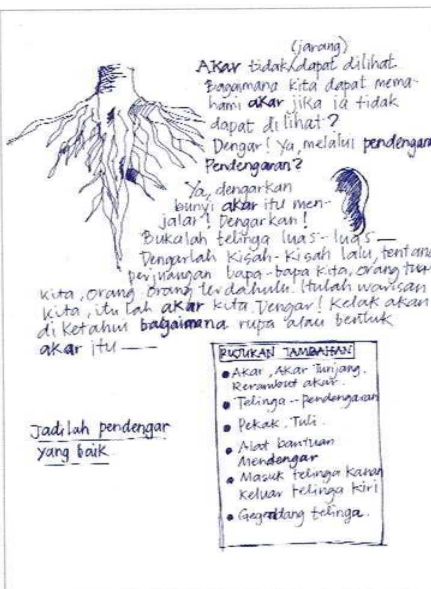 (jarang)
Akar tidak dapat dilihat.
Bagaimana kita dapat mema-
hami akar jika ia tidak
dapat dilihat?
Dengar! Ya, melalui pendengaran
Pendengaran?
Ya, dengarkan
bunyi akar itu men-
jalar! Dengarkan!
Bukalah telinga luas-luas —
Dengarlah kisah-kisah lalu, tentang
perjuangan bapa-bapa kita, orang tua
kita, orang-orang terdahulu. Itulah warisan
kita, itulah akar kita. Dengar! Kelak akan
di ketahui bagaimana rupa atau bentuk
akar itu —
RUJUKAN TAMBAHAN
• Akar, Akar Tunjang.
Rerambut akar.
• Telinga -- pendengaran
• Pekak. Tuli.
• Alat bantuan
Mendengar
• Masuk telinga kanan
Keluar telinga kiri
• Gegendang telinga.
Jadilah pendengar
yang baik